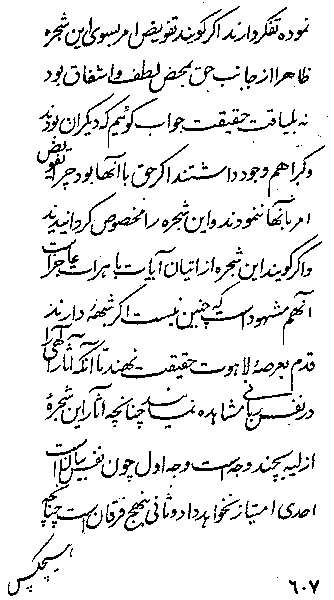 نموده تفکر دارند اکر کویند تفویض امر بسوی این شجره
ظاهرا از جانب حق بمحض لطف و اشفاق بود
نه بلیاقت حقیقت جواب کوئیم که دیکران بودند
و کبرا هم وجود داشتند اکر حق با آنها بود چرا تفویض
امر بآنها ننمودند و این شجره را مخصوص کردانیدند
و اکر کویند این شجره از اتیان آیات باهرات عاجز است
آنهم مشهود است که چنین نیست اکر شبهه دارند
قدم بعرصهٔ لاهوت حقیقت نهند تا آنکه آثار الهی را
در نفس ربانی مشاهده نمایند چنانچه آثار این شجرهٔ
ازلیه بچند وجه است وجه اول چون نفس بیان است
احدی امتیاز نخواهد داد و ثانی بنهج فرقان است چنانچه
هیچکس
٦٠٧